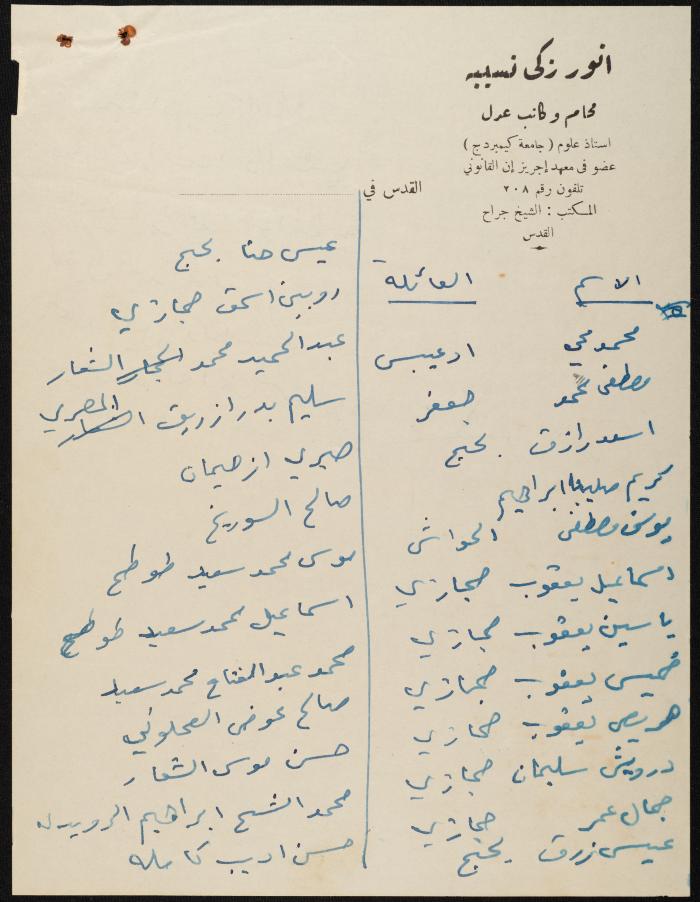 انور زكي نسيبه
محام وكاتب عدل
استاذ علوم (جامعة كيمبردج)
عضو في معهد إجريز إن القانوني
تلفون رقم ٢٠٨
المكتب : الشيخ جراح
القدس
القدس في
الاسم العائلة
محمود محي ادعيبس
مصطفى محمد جعفر
اسعد رازق بحبح
كريم صليبا ابراهيم
يوسف مصطفى الحواش
اسماعيل يعقوب حجازي
ياسين يعقوب حجازي
خميس يعقوب حجازي
يعقوب حجازي
درويش سليمان حجازي
جمال عمر حجازي
عيسى رزق بحبح
عيسى حنا بحبح
روبين اسحق حجازي
عبد الحميد محمد الشعار
سليم بدر ازريق المصري
صبري ازحيمان
صالح
موسى محمد سعيد طوطح
اسماعيل محمد سعيد طوطح
محمد عبد الفتاح محمد سعيد
صالح عوض
حسن موسى الشعار
محمد الشيخ ابراهيم الرويدي
حسن اديب كامله